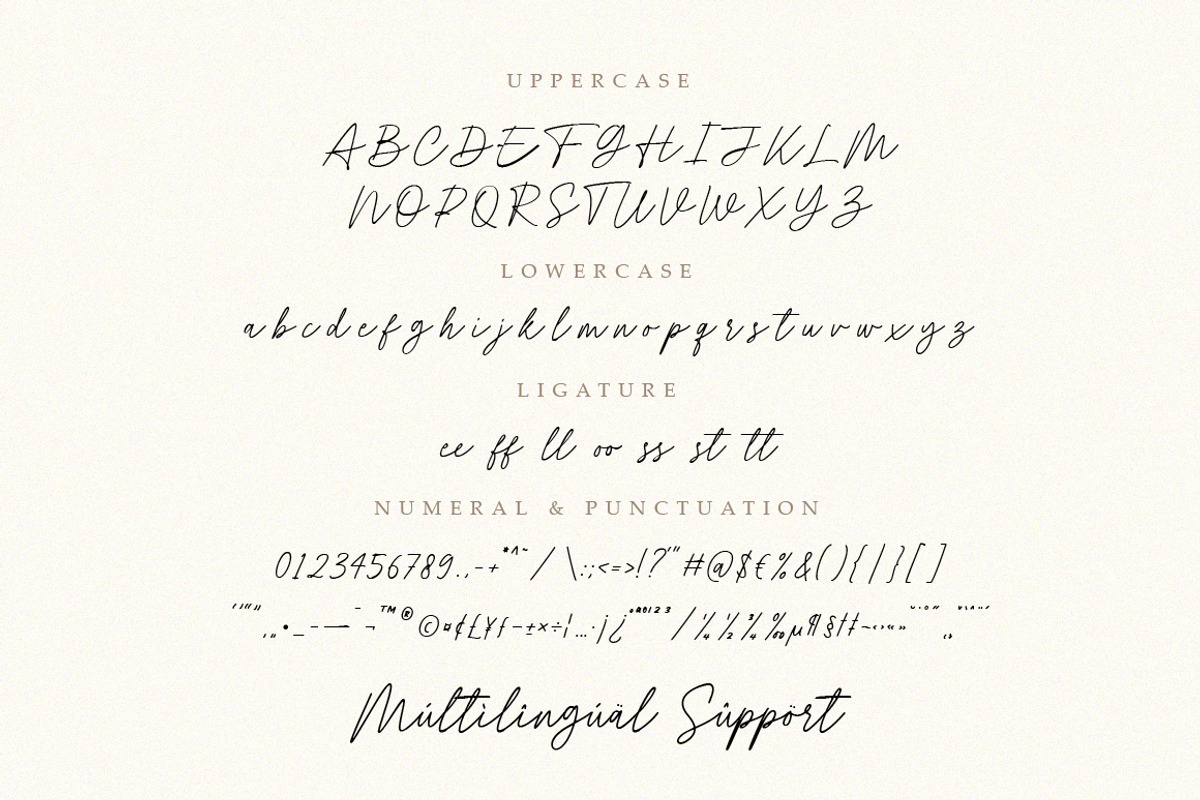 UPPERCASE
ABCDEFGHIJKLM
NOPQRSTUVWXYZ
LOWERCASE
abcdefghijklmnopqrstuvwxyz
LIGATURE
ee ff ll oo ss st tt
NUMERAL & PUNCTUATION
0123456789.,-+*^~/\:;<=>!?'"#@$€%&(){|}[]
‘’“”‚„•_–—¯¬™®©¤¢£¥ƒ-±×÷¦…·¡¿°ªº¹²³⁄¼½¾‰µ¶§†‡~‹›«»
Múltìlîngúäl Sûppört